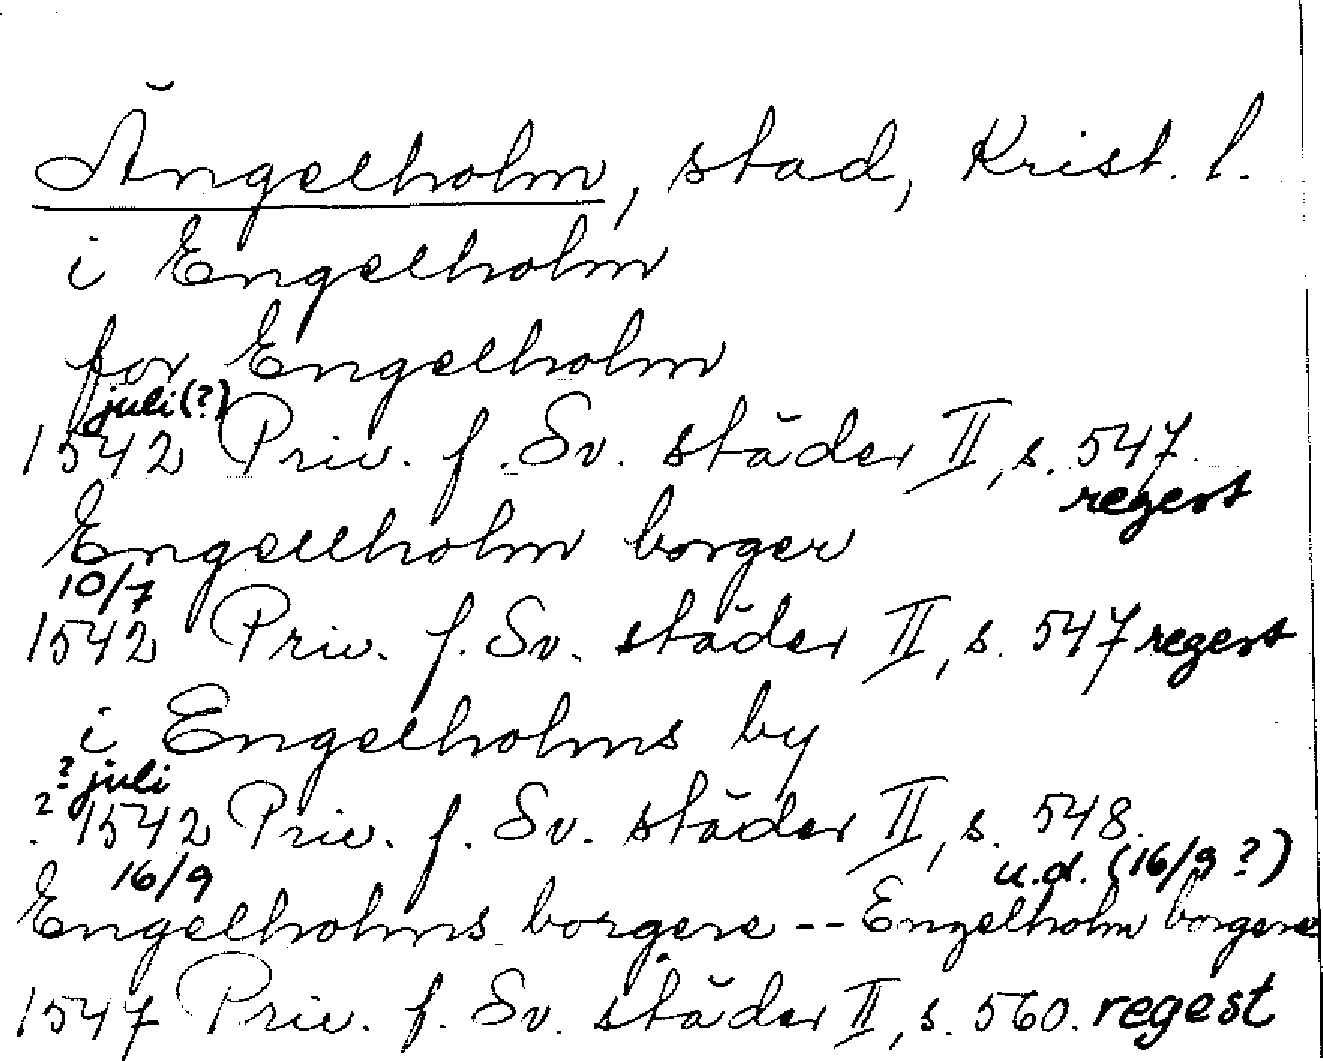 Ängelholm, stad, Krist. l.
i Engelholm
for Engelholm
juli(?)
1542 Priv. f. Sv. städer II, s. 547.
regest
Engellholm borger
10/7
1542 Priv. f. Sv. städer II, s. 547 regest
i Engelholms by
? juli
? 1542 Priv. f. Sv. städer II, s. 548.
16/9 u.d. (16/9 ?)
Engelholms borgere -- Engelholm borgere
1547 Priv. f. Sv. städer II, s. 560. regest